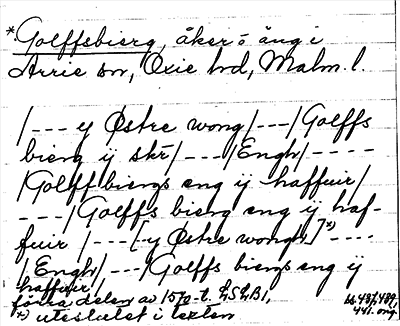 *Golffsbierg, åker o äng i
Arrie sn, Oxie hd, Malm. l.
/--- y Østre wong/---/Golffs
bierg ij skr/---/Engh/----
/Golff biergs eng ij haffuir/
---/Golffs bierg eng ij haf-
fuir/---[-y Østre wongh,]*)----
/Engh/---/Golffs biergs eng ij
haffuir/
förra delen av 1570-t. LSLB1,
bl. 487, 489,
441. orig.
*) uteslutet i texten